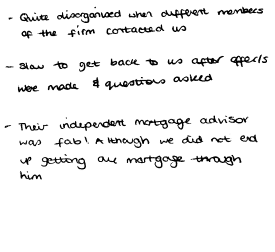 - Quite disorganised when different members
of the firm contacted us
- Slow to get back to us after offer/s
were made & questions asked
- Their independent mortgage advisor
was fab! Although we did not end
up getting our mortgage through
him